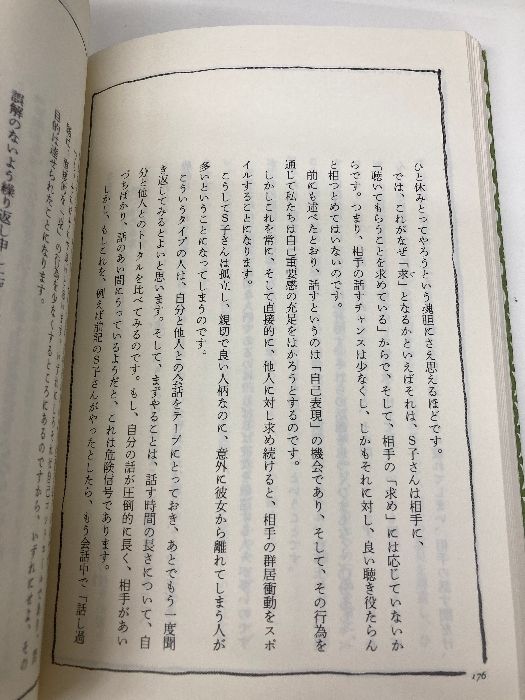 ひと休みとってやろうという魂胆にさえ思えるほどです。
では、これがなぜ「求」となるかといえばそれは、S子さんは相手に、
「聴いてもらうことを求めている」からで、そして、相手の「求め」には応じていないか
らです。つまり、相手の話すチャンスは少なくし、しかもそれに対し、良い聴き役たらん
と相つとめてはいないのです。
前にも述べたとおり、話すというのは「自己表現」の機会であり、そして、その行為を
通じて私たちは自己重要感の充足をはかろうとするのです。
しかしこれを常に、そして直接的に、他人に対し求め続けると、相手の群居衝動をスポ
イルすることになります。
こうしてS子さんは孤立し、親切で良い人柄なのに、意外に彼女から離れてしまう人が
多いということになってしまうのです。
こういうタイプの人は、自分と他人との会話をテープにとっておき、あとでもう一度聞
き返してみるとよいと思います。そして、まずやることは、話す時間の長さについて、自
分と他人とのトータルを比べてみるのです。もし、自分の話が圧倒的に長く、相手があい
づちばかり、話のあい間にうっているようだと、これは危険信号であります。
しかし、もしこれを、例えば前記のS子さんがやったとしたら、もう会話中で「話し過
176
誤解のないよう繰り返し申
目的は達せられたことになります。